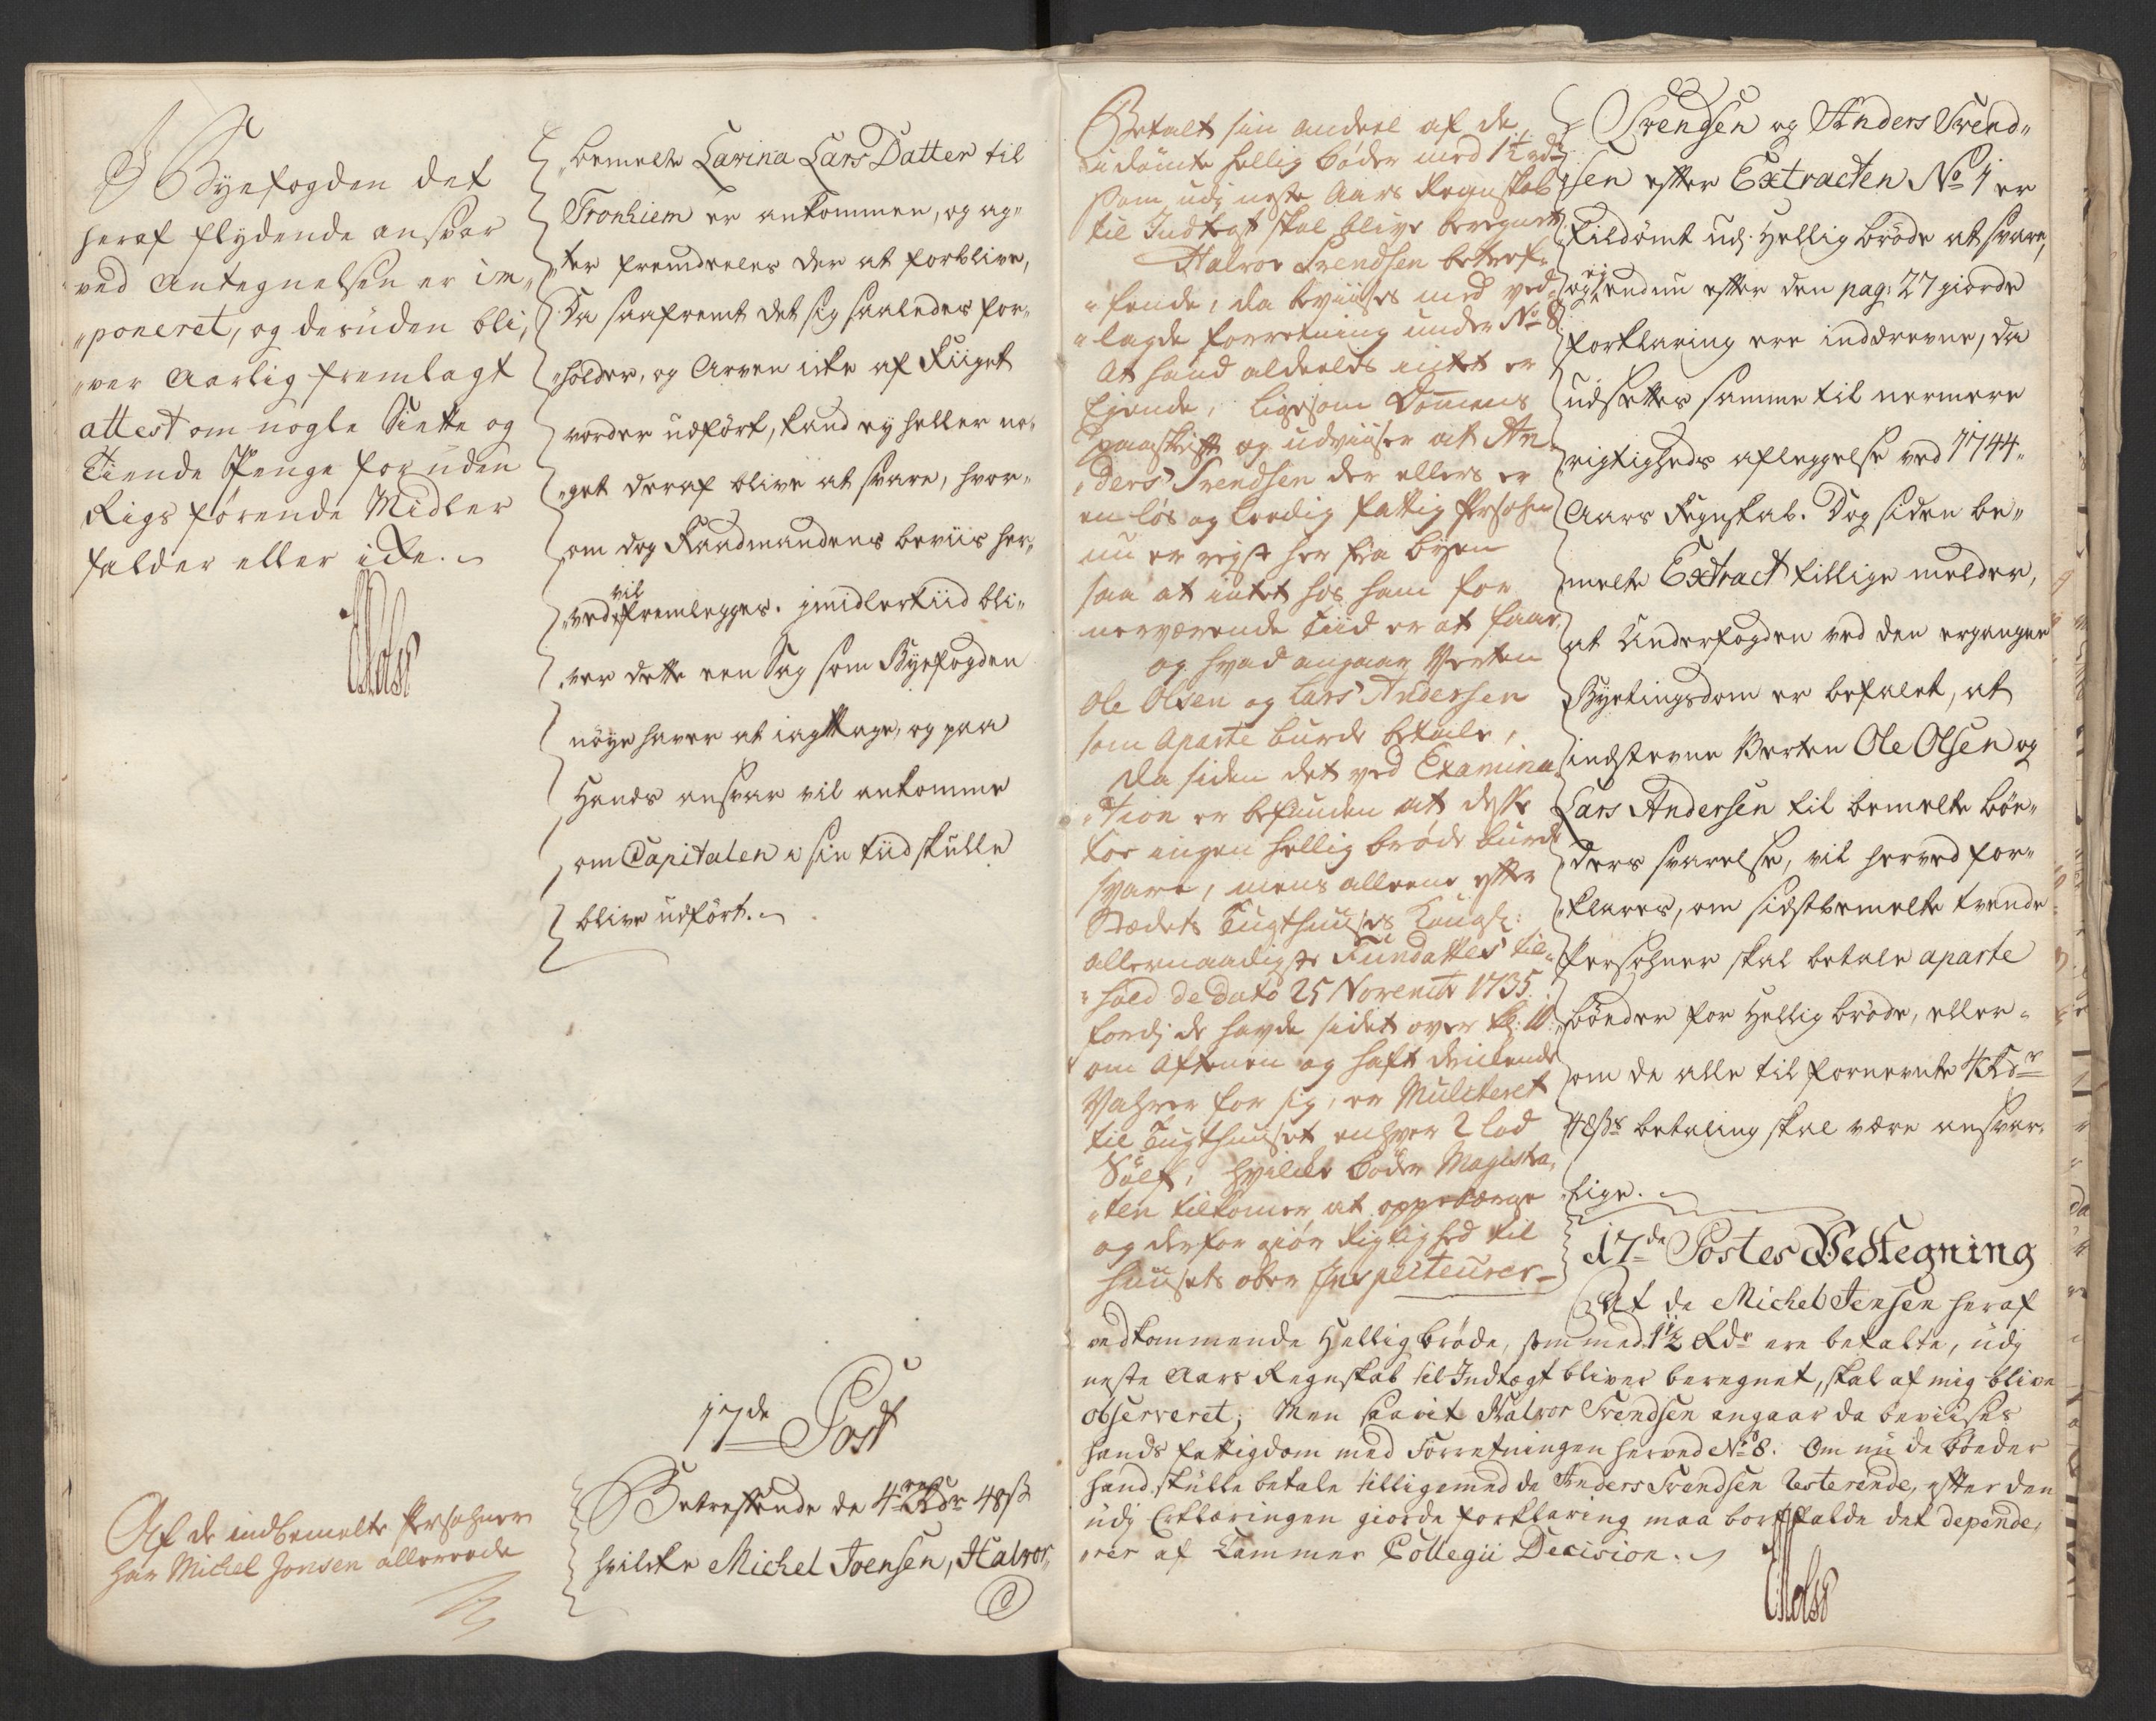 J Byefogden det
heraf flydende ansvar
ved Antegnelsen er im„
„poneret, og desuden bli„
„ver Aarlig fremlagt
attest om nogle Siette og
Tiende Penge for uden
Rigs førende Midler
falder eller icke.
bemelte Carina Lars Datter til
Tronhiem er ankommen, og ag„
„ter fremdeeles der at forblive,
Da saafremt det sig saaledes for„
„holder, og Arven icke af Riiget
vorder udført, kand ey heller no„
„get deraf blive at svare, hvor„
om dog Raadmandens beviis her„
vil
„ved fremlegges. jmidlertiid bli„
„ver dette een Sag som Byefogden
nöye haver at iagttage, og paa
Hands ansvar vil ankomme
om Capitalen i sin tiid skulle
blive udført.
17de Post
Betreffende de 4 Rdr 48 s
hvilcke Michel Joensen, Halvor„
Af de indbemelte Persohner
har Michel Jonsen allerrede
Betalt sin andeel af de
idömte hellig böder med 1½ rdr
som udj neste Aars Regnskab
til Indtegt skal blive beregnet
Halvor Svendsen betref„
„fende, da beviises med ved„
„lagde forretning under No 8
At hand aldeelis intet er
Ejende, ligesom Domens
paaskrift og udviiser at An„
„ders Svendsen der ellers er
en løs og leedig fattig Persohn
nu er reyst her fra byen
saa at intet hos ham for
nerværende tiid er at faae,
og hvad angaar Verten
Ole Olsen og Lars Andersen
som Aparte burde betale,
Da siden det ved Examina„
„tion er befunden at disse
toe ingen hellig bröde burde
svare, mens alleene efter
Stædets Tugthuuses Kongl:
allernaadigste Fundatzes til„
„hold de Dato 25 Novembr 1735
fordj de havde sidet over kl: 10
om Aftenen og haft drickende
Vahrer for sig, er Mulcteret
til Tugthuuset enhver 2 lod
Sölf, hvilcke böder Magistra„
„ten tilkomer at oppebærge
og derfor giör Rigtighed til
huusets ober Inspecteurer
Svendsen og Anders Svend„
sen efter Extracten No 1 er
tildömt udj Hellig bröde at svare,
ey
og endnu efter den pag: 27 giorde
forklaring ere inddrevne, da
udsettes samme til nermere
rigtigheds afleggelse ved 1744
Aars Regnskab. Dog siden be„
melte Extract tillige melder,
at Underfogden ved den ergangne
Byetingsdom er befalet, at
indstevne Verten Ole Olsen og
Lars Andersen til bemelte böe„
„ders svarelse, vil herved for„
„klares, om sidstbemelte tvende
Persohner skal betale aparte
bönder for Hellig bröde, eller
om de alle til fornevnte 4 Rdr
48 s betaling skal være ansvar„
lige.
17de Postes Vedtegning
At de Michel Jensen heraf
vedkommende Hellig bröde, som med 1½ Rdr ere betalte, udj
neste Aars Regnskab til Indtægt bliver beregnet, skal af mig blive
observeret; Men saavit Halvor Svendsen angaar da beviises
hands fattigdom med Forretningen herved No 8. Om nu de böeder
hand skulle betale tilligemed de Anders Svendsen Resterende, efter den
udj Erklæringen giorde forklaring maa bortfalde det depende„
„rer af Cammer Collegii Decision.